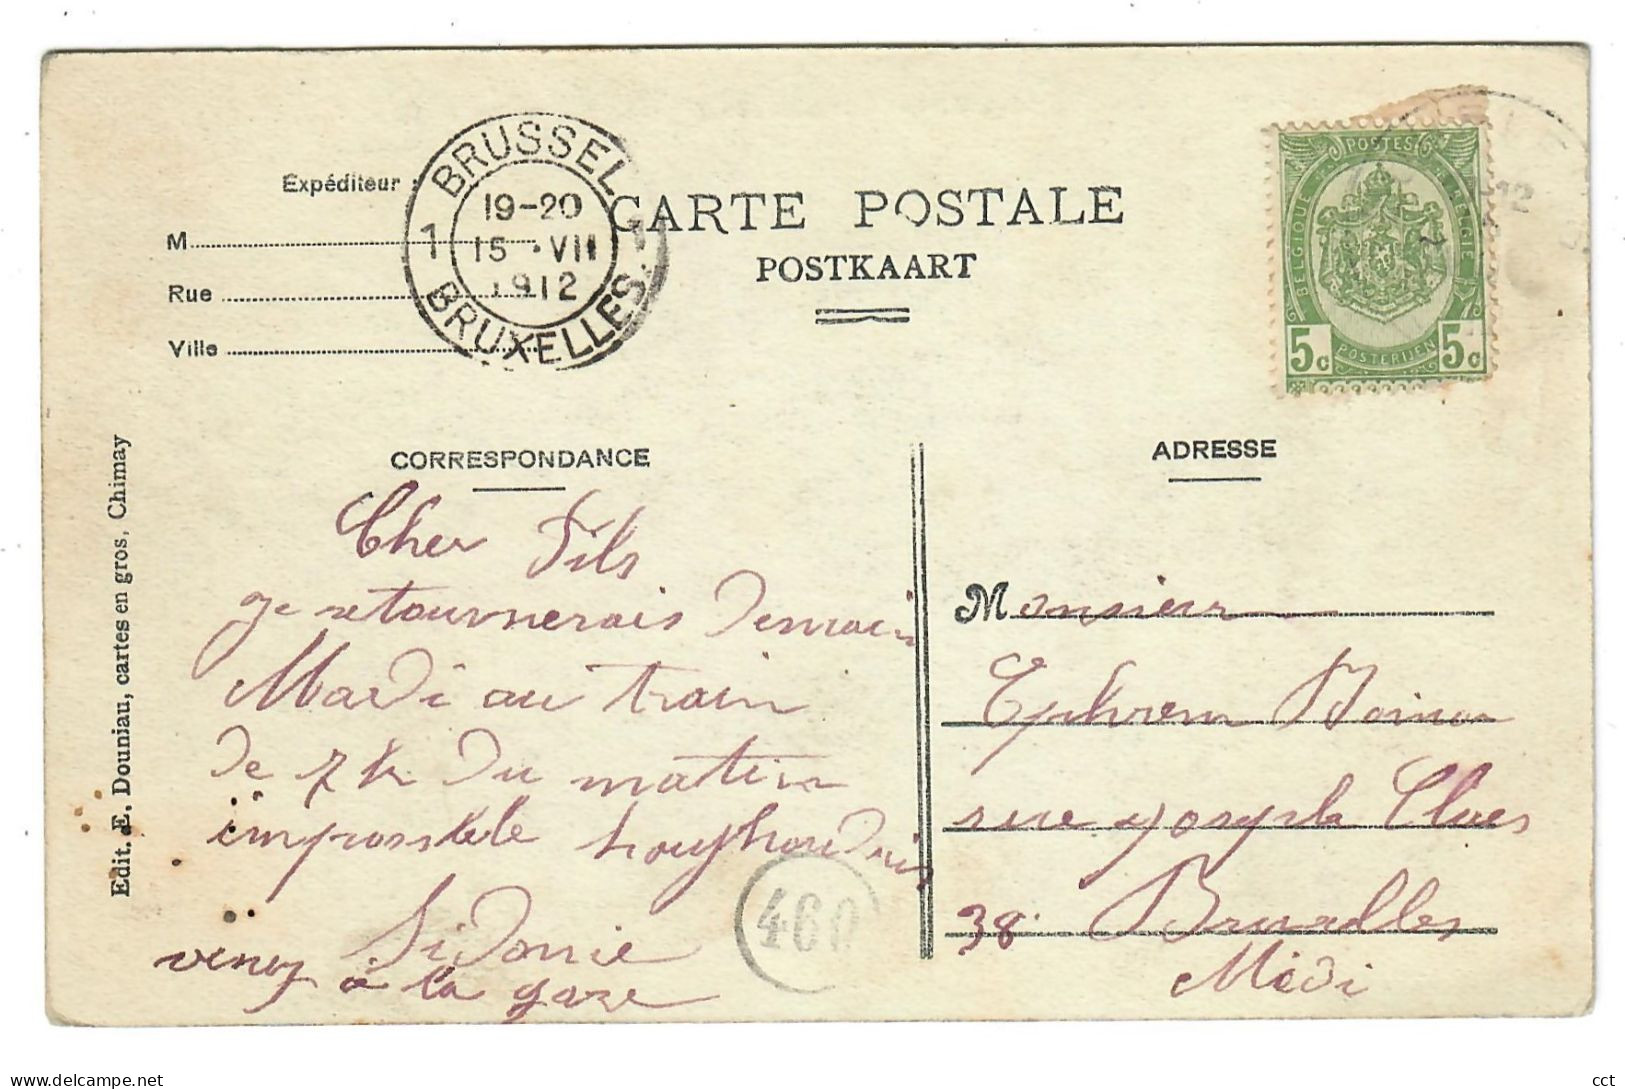 BRUSSEL
19-20
15 · VII
1912
1
1
BRUXELLES
CARTE POSTALE
POSTKAART
Expéditeur :
M
Rue
Ville
POSTES
BELGIQUE
BELGIE
5c
POSTERIJEN
5c
12
Edit. E. Douniau, cartes en gros, Chimay
CORRESPONDANCE
Cher Fils
je retournerais Demain
Mardi au train
de 7 h du matin
impossible houjhourduis
Sidonie
venez à la gare
460
ADRESSE
Monsieur
Ephrem
rue joseph Claes
38 Bruxelles
Midi
cct